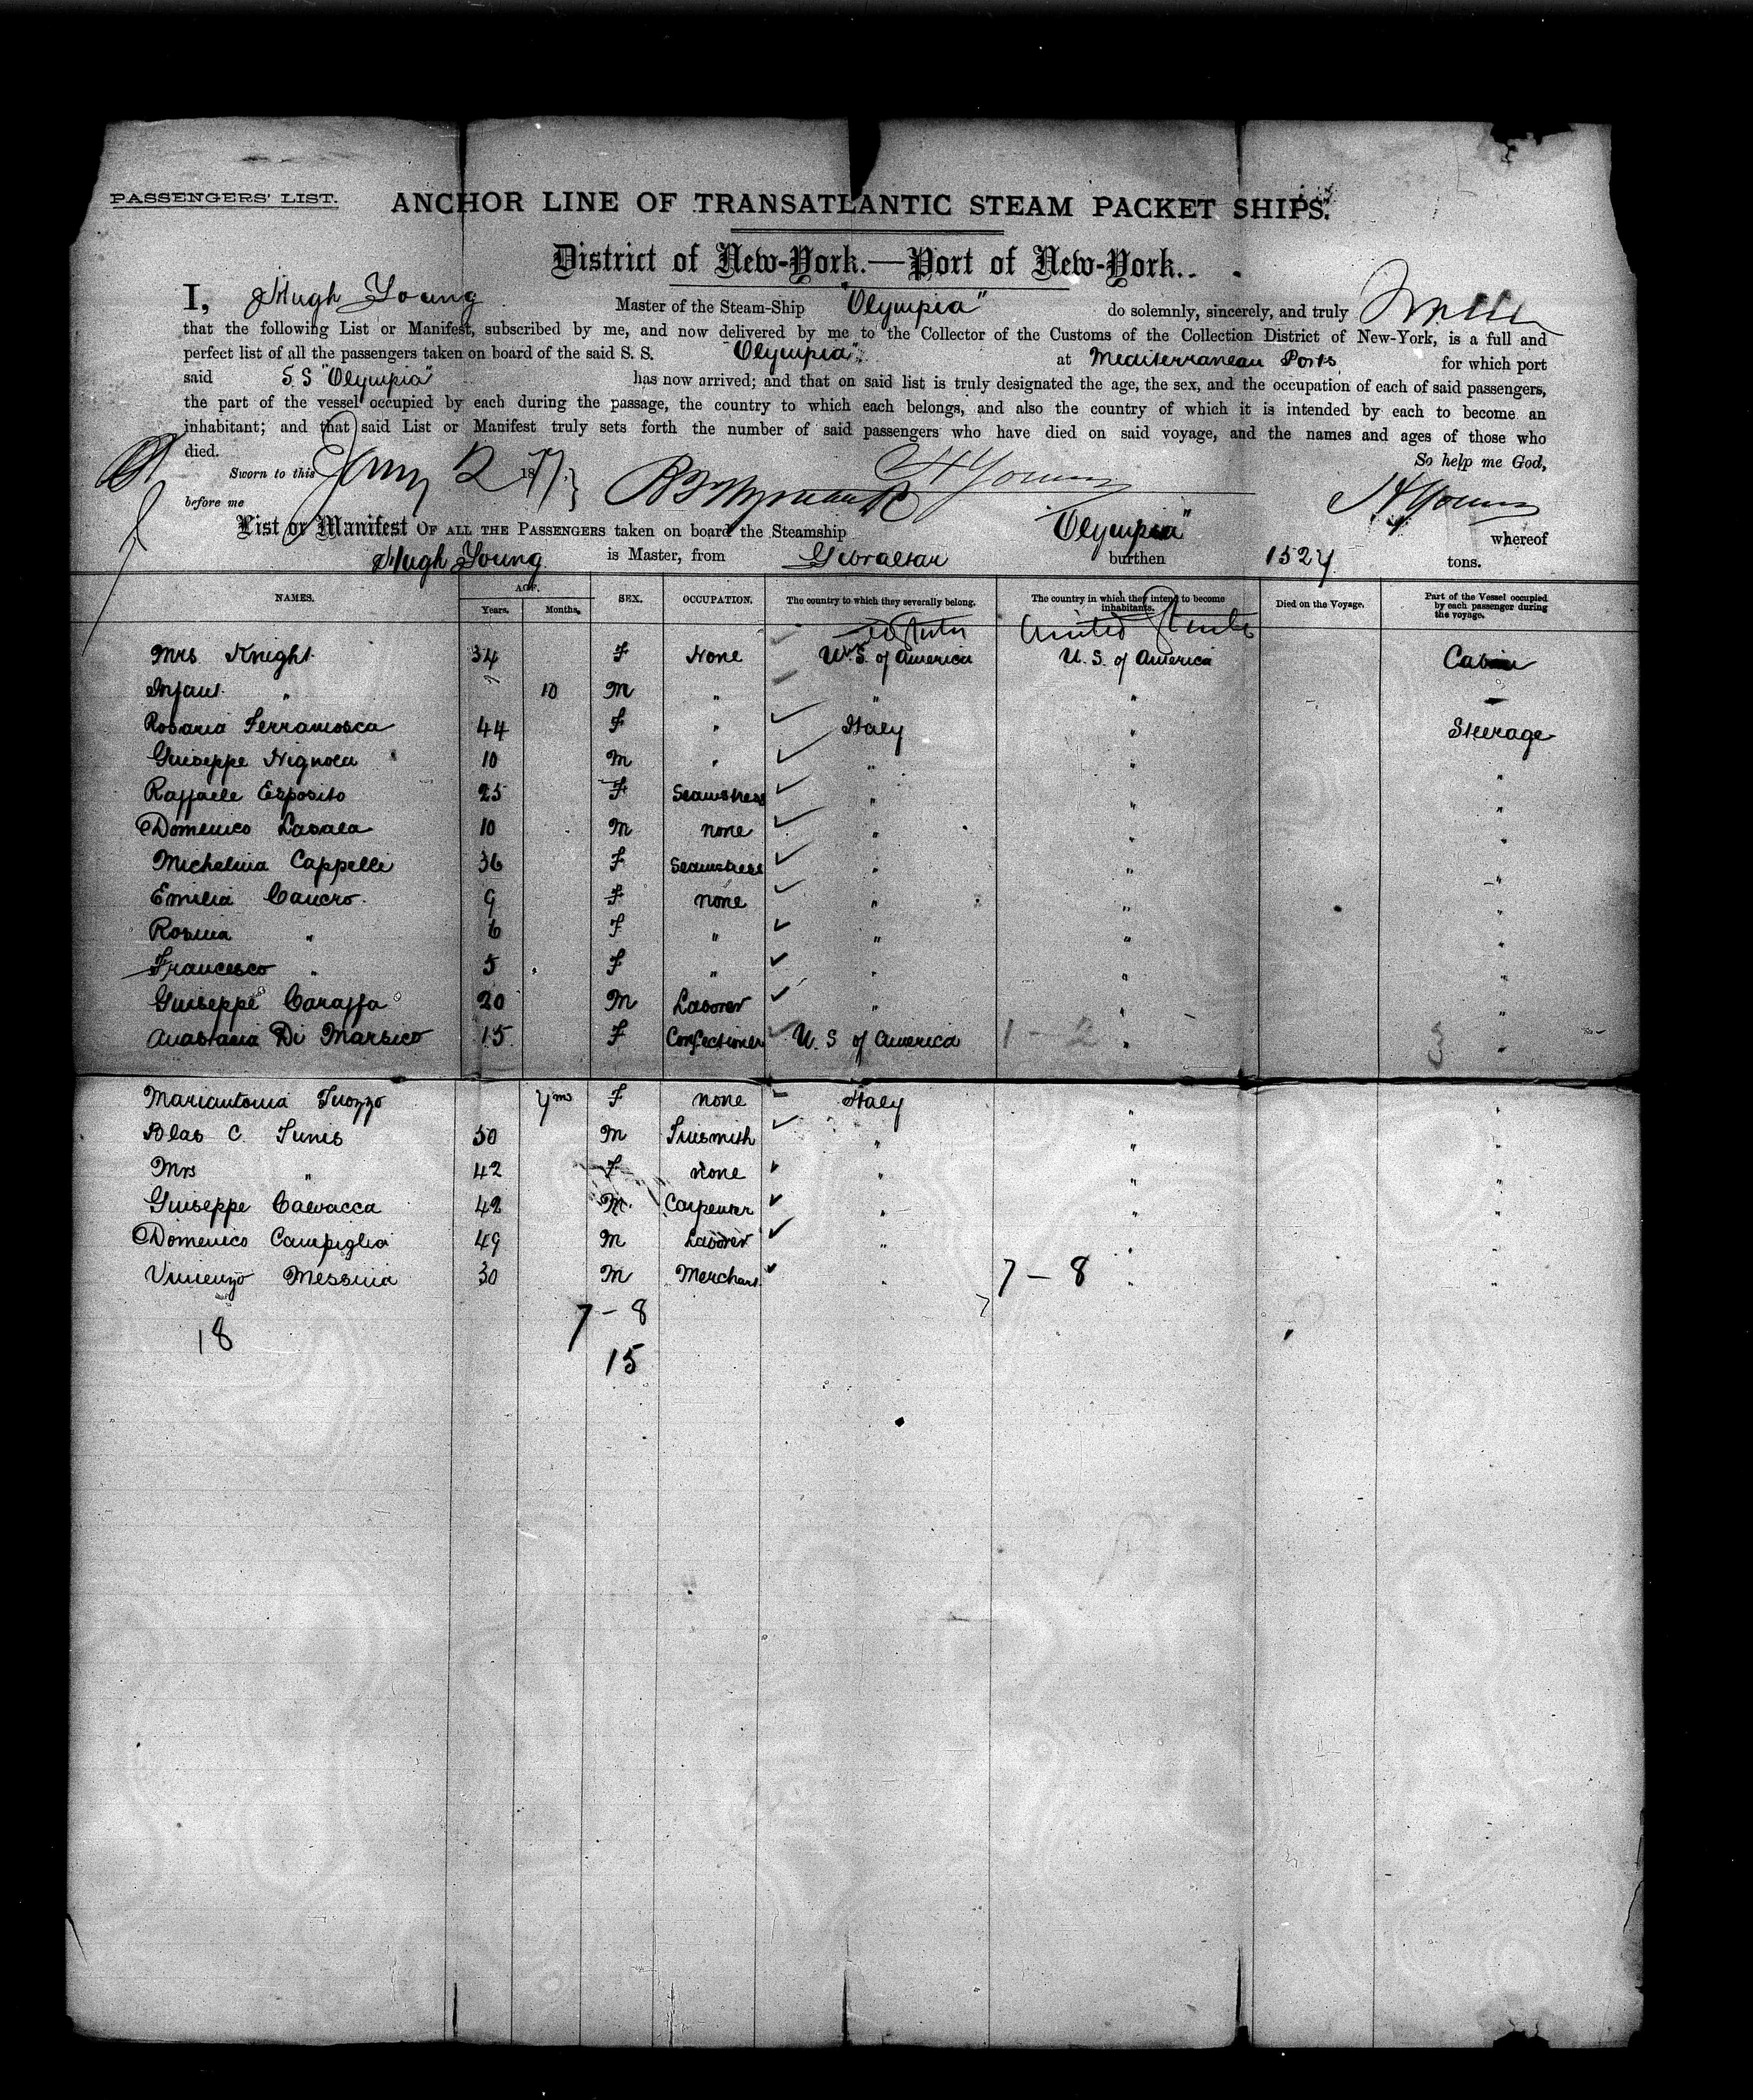 PASSENGERS' LIST. ANCHOR LINE OF TRANSATLANTIC STEAM PACKET SHIPS.
District of New-York.—Port of New-York.
I, Hugh Young Master of the Steam-Ship "Olympia" do solemnly, sincerely, and truly
that the following List or Manifest, subscribed by me, and now delivered by me to the Collector of the Customs of the Collection District of New-York, is a full and
perfect list of all the passengers taken on board of the said S. S. "Olympia" at Mediterranean Ports for which port
said S. S "Olympia" has now arrived; and that on said list is truly designated the age, the sex, and the occupation of each of said passengers,
the part of the vessel occupied by each during the passage, the country to which each belongs, and also the country of which it is intended by each to become an
inhabitant; and that said List or Manifest truly sets forth the number of said passengers who have died on said voyage, and the names and ages of those who
died. So help me God,
Sworn to this Jany 2 1877 H Young
before me H Young
List or Manifest OF ALL THE PASSENGERS taken on board the Steamship "Olympia" whereof
Hugh Young is Master, from Gibraltar burthen 1527 tons.
NAMES. AGE. Years. Months. SEX. OCCUPATION. The country to which they severally belong. The country in which they intend to become inhabitants. Died on the Voyage. Part of the Vessel occupied by each passenger during the voyage.
United States
Mrs Knight 34 F None U. S. of America U. S. of America Cabin
Infant " 10 M " " " "
Rosaria Ferramosca 44 F " Italy " Steerage
Guiseppe Nignola 10 M " " " "
Raffaele Esposito 25 F Seamstress " " "
Domenico Lasala 10 M none " " "
Michelina Cappelli 36 F Seamstress " " "
Emilia Caucro 9 F none " " "
Rosina " 6 F " " " "
Francesco " 5 F " " " "
Guiseppe Caraffa 20 M Laborer " " "
Anastasia Di Marsico 15 F Confectioner U. S of America 1-2 " 3 "
Mariantonia Tuozzo 7ms F none Italy " "
Blas C. Tunis 50 M Tinsmith " " "
Mrs " 42 F none " " "
Guiseppe Cavacca 42 M Carpenter " " "
Domenico Campiglia 49 M Laborer " " "
Vincenzo Messina 30 M Merchant " 7-8 " "
18 7-8
15